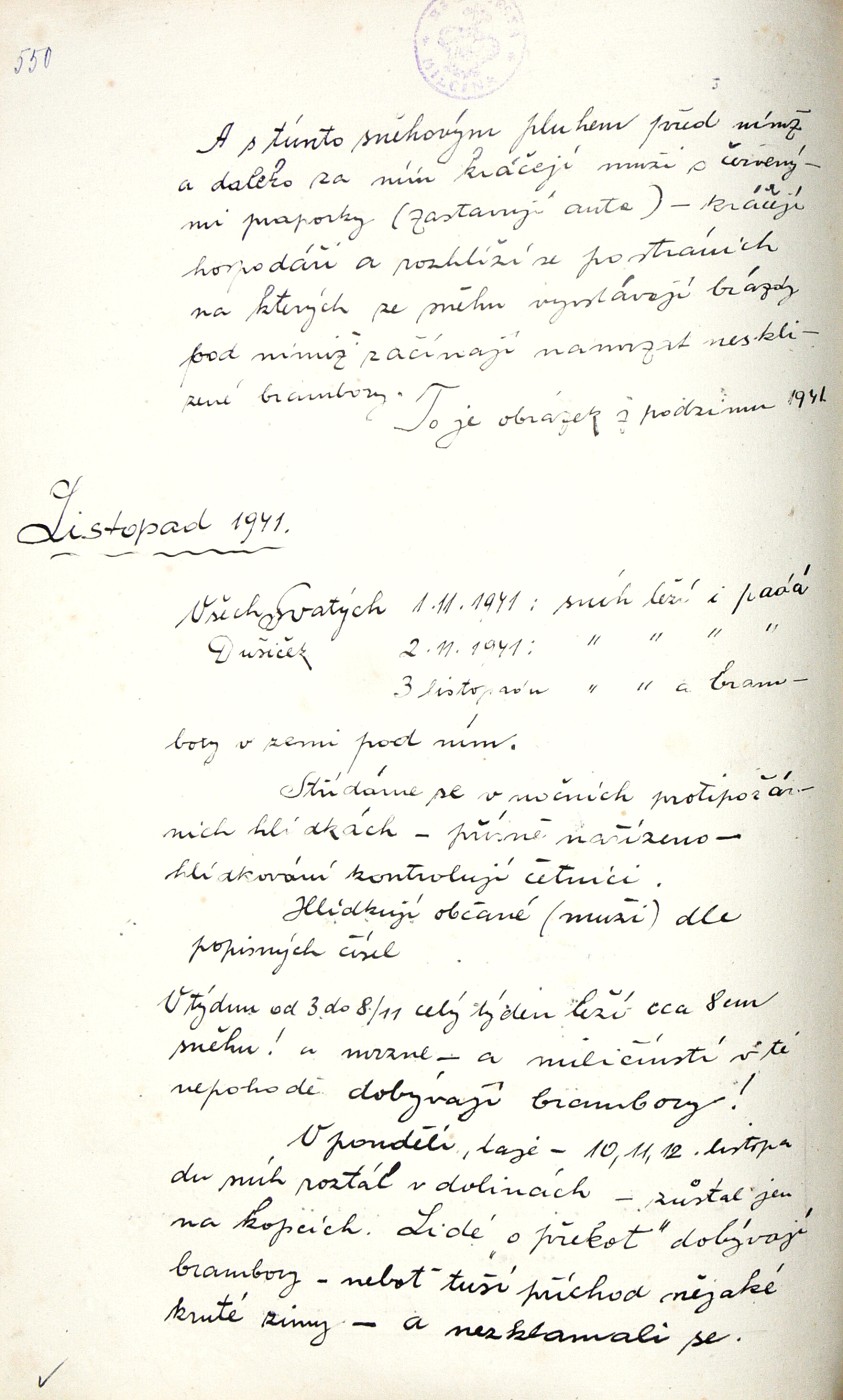 550
A s tímto sněhovým pluhem před nímž
a daleko za ním kráčejí muži s červený-
mi praporky (zastavují auta) - kráčejí
hospodáři a rozhlíží se po stráních
na kterých ze sněhu vyvstávají brázdy
pod nimiž začínají namrzat neskli-
zené brambory.
To je obrázek z podzimu 1941
Listopad 1941.
Všech Svatých 1.11.1941: sníh leží i padá
Dušiček 2.11.1941: " " " "
3 listopadu " " a bram-
bory v zemi pod ním.
Střídáme se v nočních protipožár-
ních hlídkách - přísně nařízeno -
hlídkování kontrolují četníci.
Hlídkují občané (muži) dle
popisných čísel
V týdnu od 3 do 8/11 celý týden leží cca 8 cm
sněhu! a mrzne - a miličínští v té
nepohodě dobývají brambory!
V pondělí, taje - 10, 11, 12. listopa
du sníh roztál v dolinách - zůstal jen
na kopcích. Lidé "o překot" dobývají
brambory - neboť tuší příchod nějaké
kruté zimy - a nezklamali se.